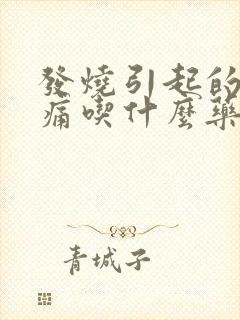 發燒引起的
痛喫什麼藥
青城子